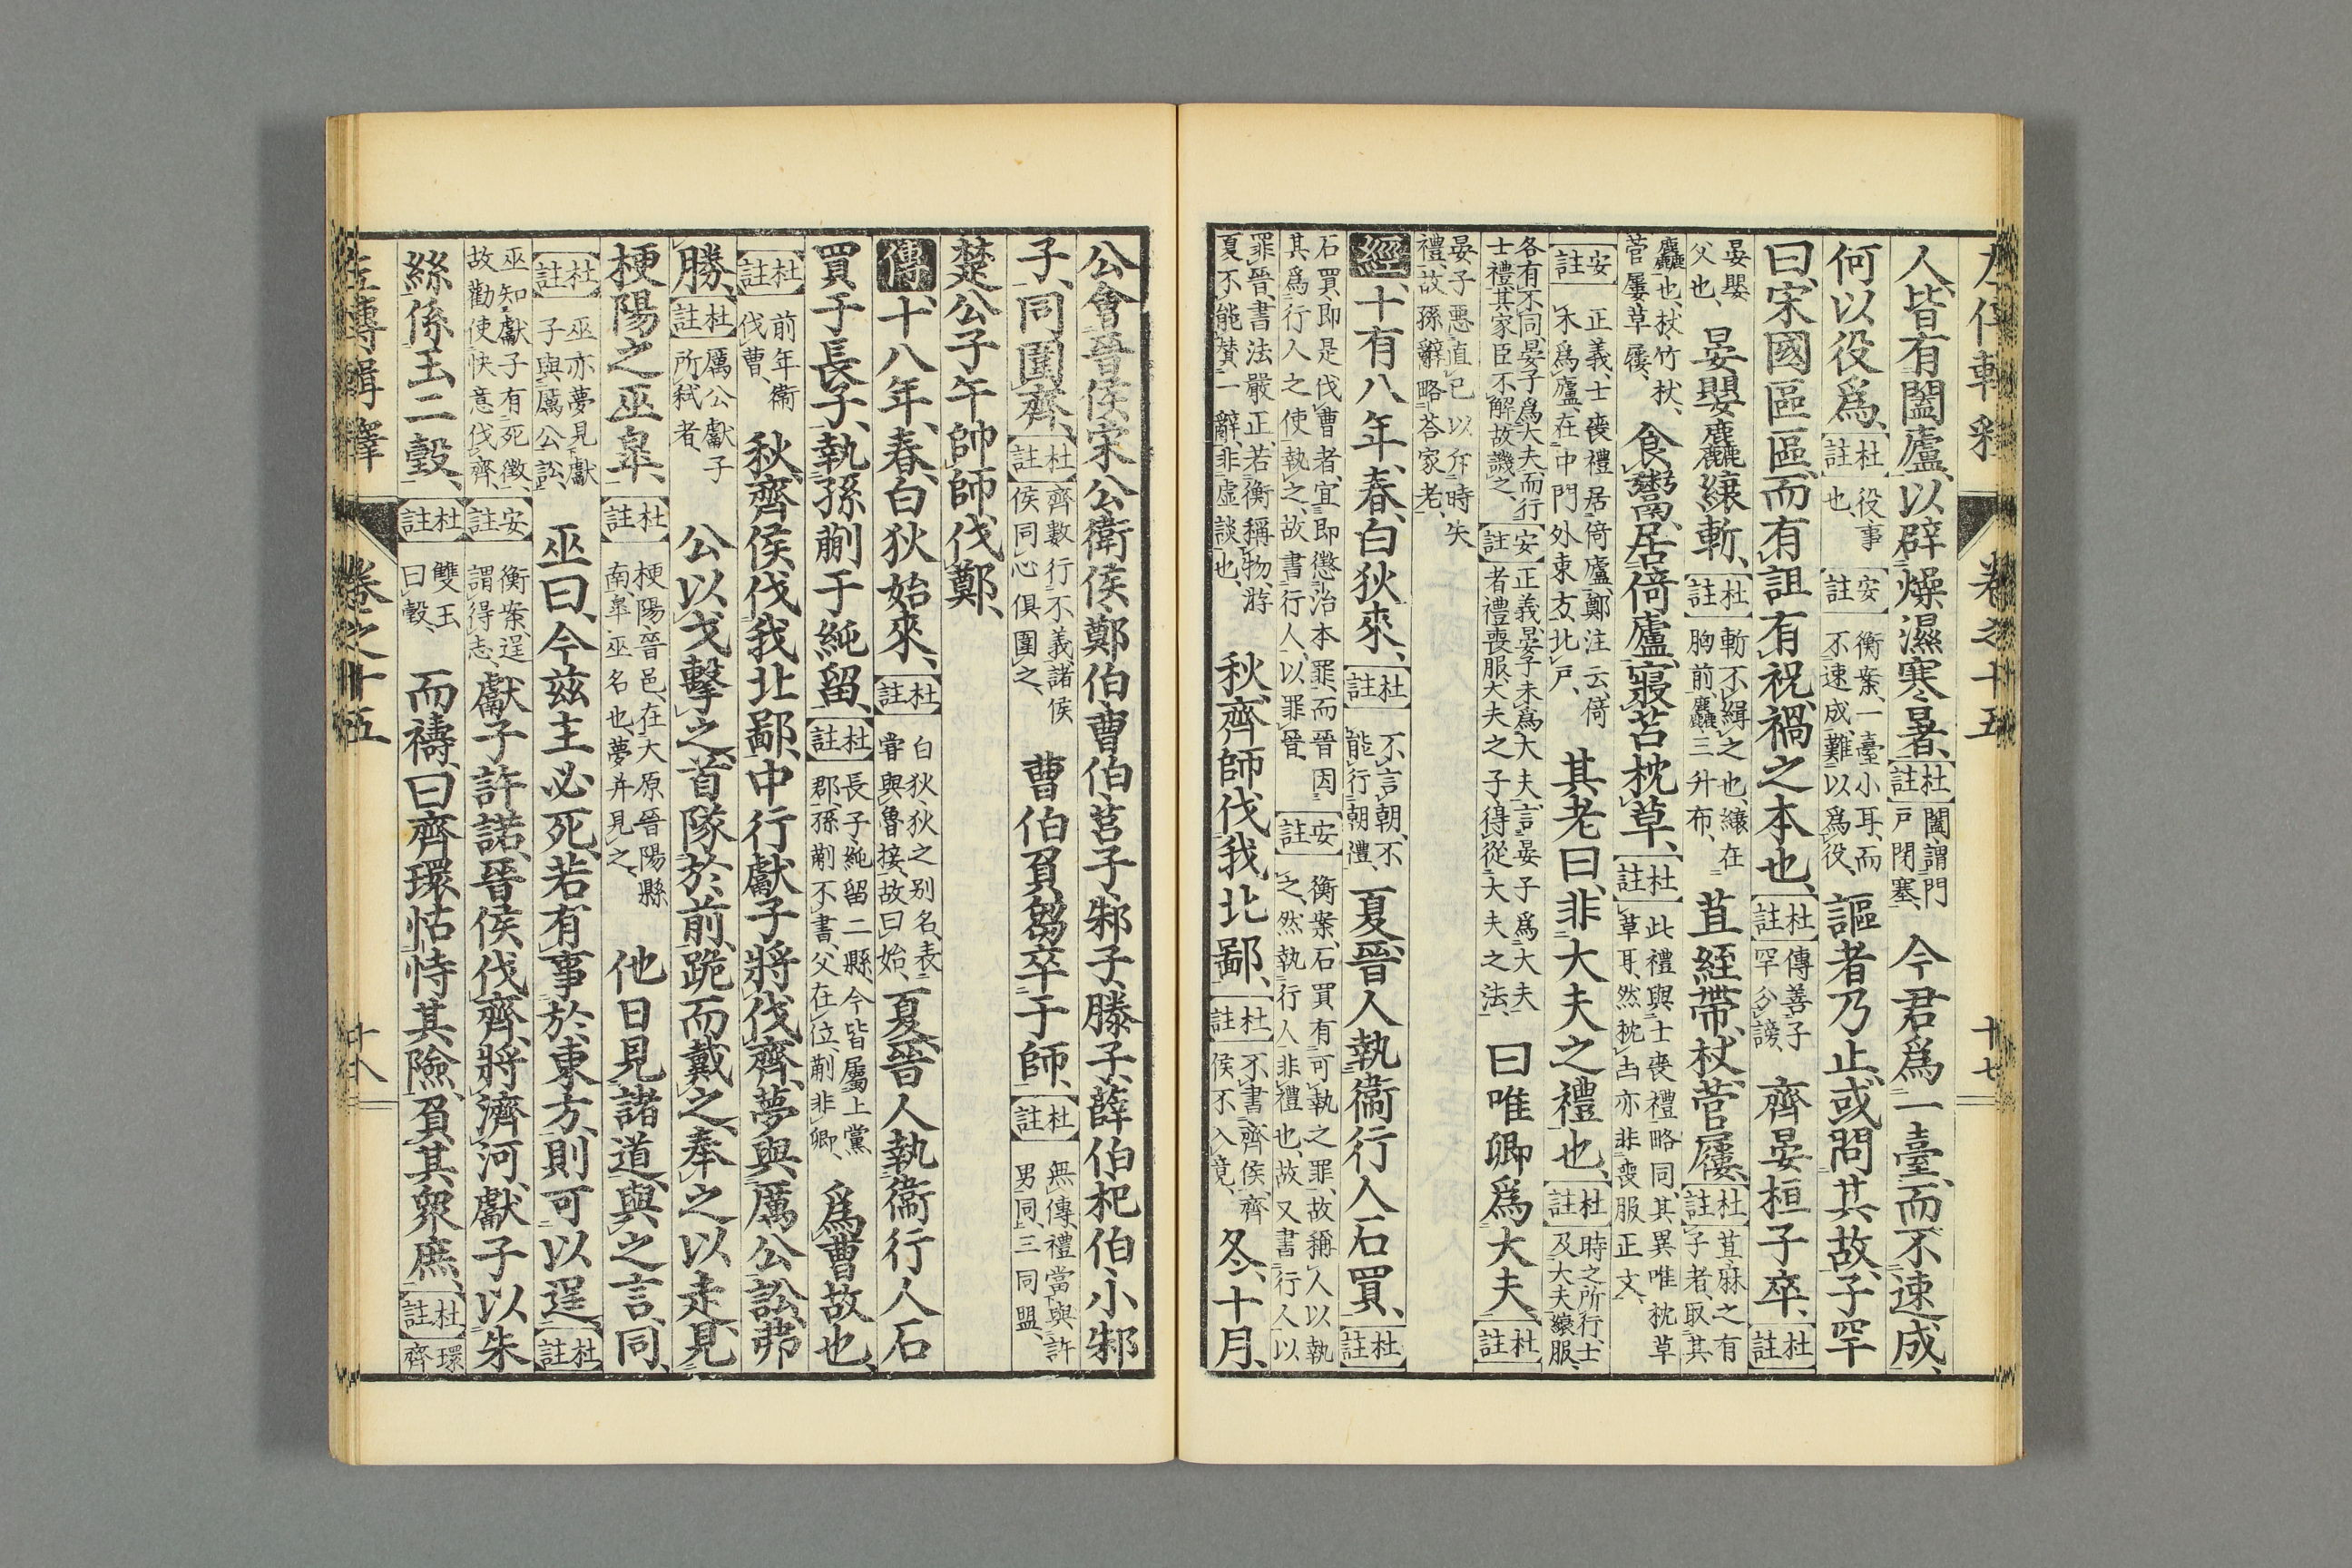 左傳輯釋 卷之十五 十七
人皆有闔廬、以辟燥濕寒暑、杜註闔、謂門戶閉塞、今君爲一臺、而不速成、
何以役爲、杜註役事也、安註衡案、一臺小耳、而不速成、難以爲役、謳者乃止、或問其故、子罕
曰、宋國區區、而有詛有祝、禍之本也、杜註傳善子罕分謗、齊晏桓子卒、杜註
晏嬰父也、晏嬰麤縗斬、杜註斬不緝之也、縗在胸前、麤三升布、苴絰帶、杖、菅屨、杜註苴、麻之有子者、取其
麤也、杖、竹杖、菅屨、草屨、食鬻、居倚廬、寢苫枕草、杜註此禮與士喪禮略同、其異唯枕草草耳、然枕凷亦非喪服正文、
安註正義、士喪禮居倚廬、鄭注云、倚木爲廬、在中門外東方、北戶、其老曰、非大夫之禮也、杜註時之所行、士及大夫縗服、
各有不同、晏子爲大夫、而行士禮、其家臣不解、故譏之、安註正義、晏子未爲大夫、言晏子爲大夫者、禮喪服、大夫之子、得從大夫之法、曰、唯卿爲大夫、杜註
晏子惡直己以斥時失禮、故孫辭略荅家老、
經、十有八年、春、白狄來、杜註不言朝、不能行朝禮、夏、晉人執衞行人石買、杜註
石買、即是伐曹者、宜即懲治本罪、而晉因其爲行人之使執之、故書行人、以罪晉、安註衡案、石買有可執之罪、故稱人以執之、然執行人非禮也、故又書行人以
罪晉、書法嚴正、若衡稱物、游夏不能贊一辭、非虛談也、秋、齊師伐我北鄙、杜註不書齊侯、齊侯不入竟、冬、十月、
公會晉侯宋公衞侯鄭伯曹伯莒子邾子滕子薛伯杞伯小邾
子、同圍齊、杜註齊數行不義、諸侯同心俱圍之、曹伯負芻卒于師、杜註無傳、禮當與許男同、三同盟、
楚公子午帥師伐鄭、
傳、十八年、春、白狄始來、杜註白狄、狄之別名、表嘗與魯接、故曰始、夏、晉人執衞行人石
買于長子、執孫蒯于純留、杜註長子、純留二縣、今皆屬上黨郡、孫蒯不書、父在位、蒯非卿、爲曹故也、
杜註前年衞伐曹、秋、齊侯伐我北鄙、中行獻子將伐齊、夢與厲公訟、弗
勝、杜註厲公、獻子所弒者、公以戈擊之、首隊於前、跪而戴之、奉之以走、見
梗陽之巫皐、杜註梗陽、晉邑、在大原晉陽縣南、皐、巫名也、夢幷見之、他日見諸道、與之言、同、
杜註巫亦夢見獻子與厲公訟、巫曰、今茲主必死、若有事於東方、則可以逞、杜註
巫知獻子有死徵、故勸使快意伐齊、安註衡案、逞、謂得志、獻子許諾、晉侯伐齊、將濟河、獻子以朱
絲係玉二瑴、杜註雙玉曰瑴、而禱、曰、齊環怙恃其險、負其衆庶、杜註環、齊
左傳輯釋 卷之十五 十八